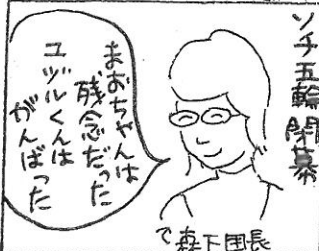 ソチ五輪閉幕
まおちゃんは
残念だった
ユヅルくんは
がんばった
で森下団長